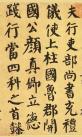 行吏部尚書充禮
儀使上柱國魯郡開
國公顏真卿立德
踐行當四科之首懿